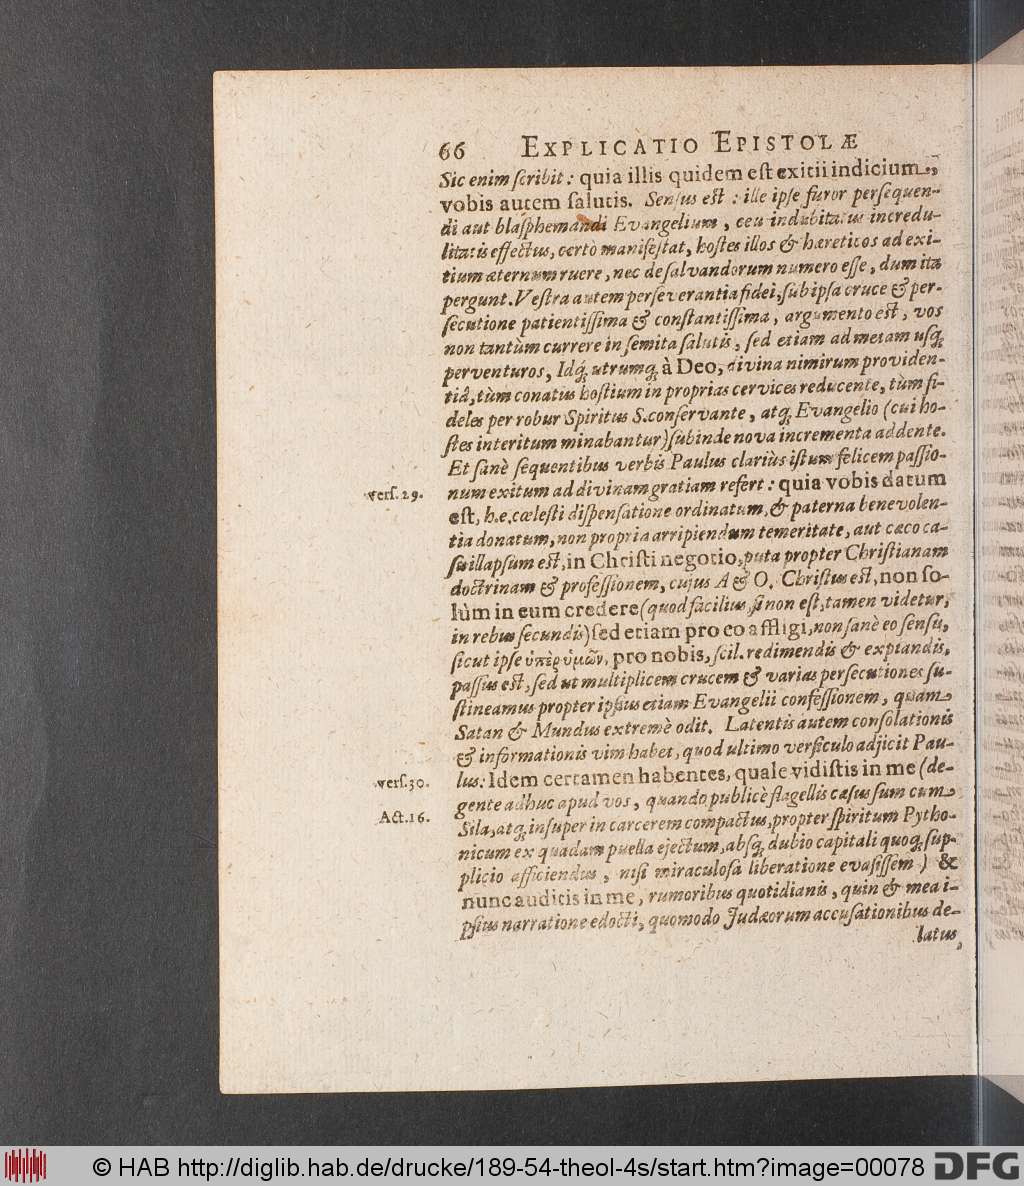 66 EXPLICATIO EPISTOLÆ
Sic enim ſcribit: quia illis quidem eſt exitii indicium,
vobis autem ſalutis. Senſus eſt: ille ipſe furor perſequen-
di aut blaſphemandi Evangelium, ceu indubitatus incredu-
litatis effectus, certò manifeſtat, hoſtes illos & hæreticos ad exi-
tium æternum ruere, nec de ſalvandorum numero eſſe, dum ita
pergunt. Veſtra autem perſeverantia fidei, ſub ipſa cruce & per-
ſecutione patientiſſima & conſtantiſſima, argumento eſt, vos
non tantùm currere in ſemita ſalutis, ſed etiam ad metam uſq́;
perventuros, Idq́; utrumq́; à Deo, divina nimirum providen-
tiâ, tùm conatus hoſtium in proprias cervices reducente, tùm fi-
deles per robur Spiritus S. conſervante, atq́; Evangelio (cui ho-
ſtes interitum minabantur) ſubinde nova incrementa addente.
Et ſanè ſequentibus verbis Paulus clariùs iſtum felicem paſſio-
verſ. 29. num exitum ad divinam gratiam refert: quia vobis datum
eſt, h.e. cœleſti diſpenſatione ordinatum, & paterna benevolen-
tia donatum, non propria arripiendum temeritate, aut cæco ca-
ſu illapſum eſt, in Chriſti negotio, puta propter Chriſtianam
doctrinam & profeſſionem, cujus A & O. Chriſtus eſt, non ſo-
lùm in eum credere (quod facilius, ſi non eſt, tamen videtur,
in rebus ſecundis) ſed etiam pro eo affligi, non ſanè eo ſenſu,
ſicut ipſe ὑπὲρ ὑμῶν, pro nobis, ſcil. redimendis & expiandis,
paſſus eſt, ſed ut multiplicem crucem & varias perſecutiones ſu-
ſtineamus propter ipſius etiam Evangelii confeſſionem, quam
Satan & Mundus extremè odit. Latentis autem conſolationis
& informationis vim habet, quod ultimo verſiculo adjicit Pau-
verſ. 30. lus: Idem certamen habentes, quale vidiſtis in me (de-
gente adhuc apud vos, quando publicè flagellis cæſus ſum cum
Act. 16. Sila, atq́; inſuper in carcerem compactus, propter ſpiritum Pytho-
nicum ex quadam puella ejectum, abſq́; dubio capitali quoq́; ſup-
plicio afficiendus, niſi miraculoſa liberatione evaſiſſem) &
nunc auditis in me, rumoribus quotidianis, quin & mea i-
pſius narratione edocti, quomodo Judæorum accuſationibus de-
latus,
© HAB http://diglib.hab.de/drucke/189-54-theol-4s/start.htm?image=00078 DFG